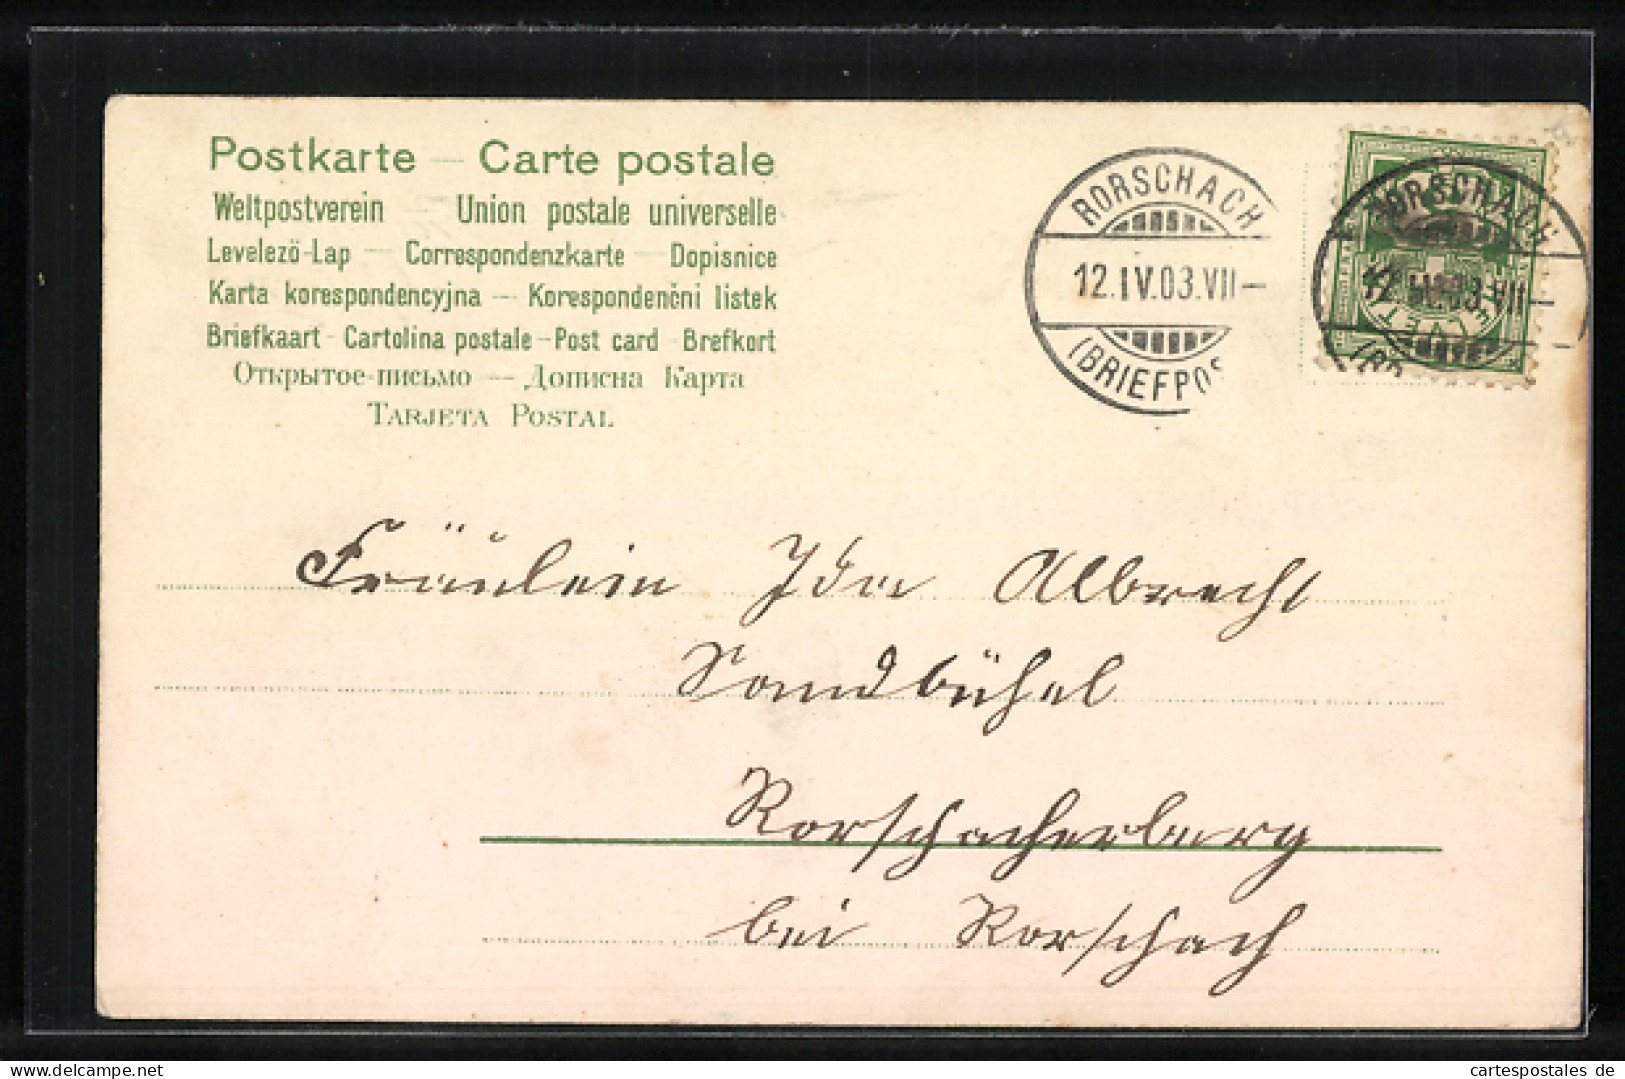 Postkarte — Carte postale
Weltpostverein Union postale universelle
Levelezö-Lap — Correspondenzkarte — Dopisnice
Karta korespondencyjna — Korespondenčni listek
Briefkaart - Cartolina postale - Post card - Brefkort
Открытое-письмо — Дописна Карта
TARJETA POSTAL
RORSCHACH
12.IV.03.VII—
(BRIEFPOS
RORSCHACH
12.IV.03.VII—
Fräulein Ida Albrecht
Sandbühel
Rorschacherberg
bei Rorschach
www.delcampe.net
cartespostales de